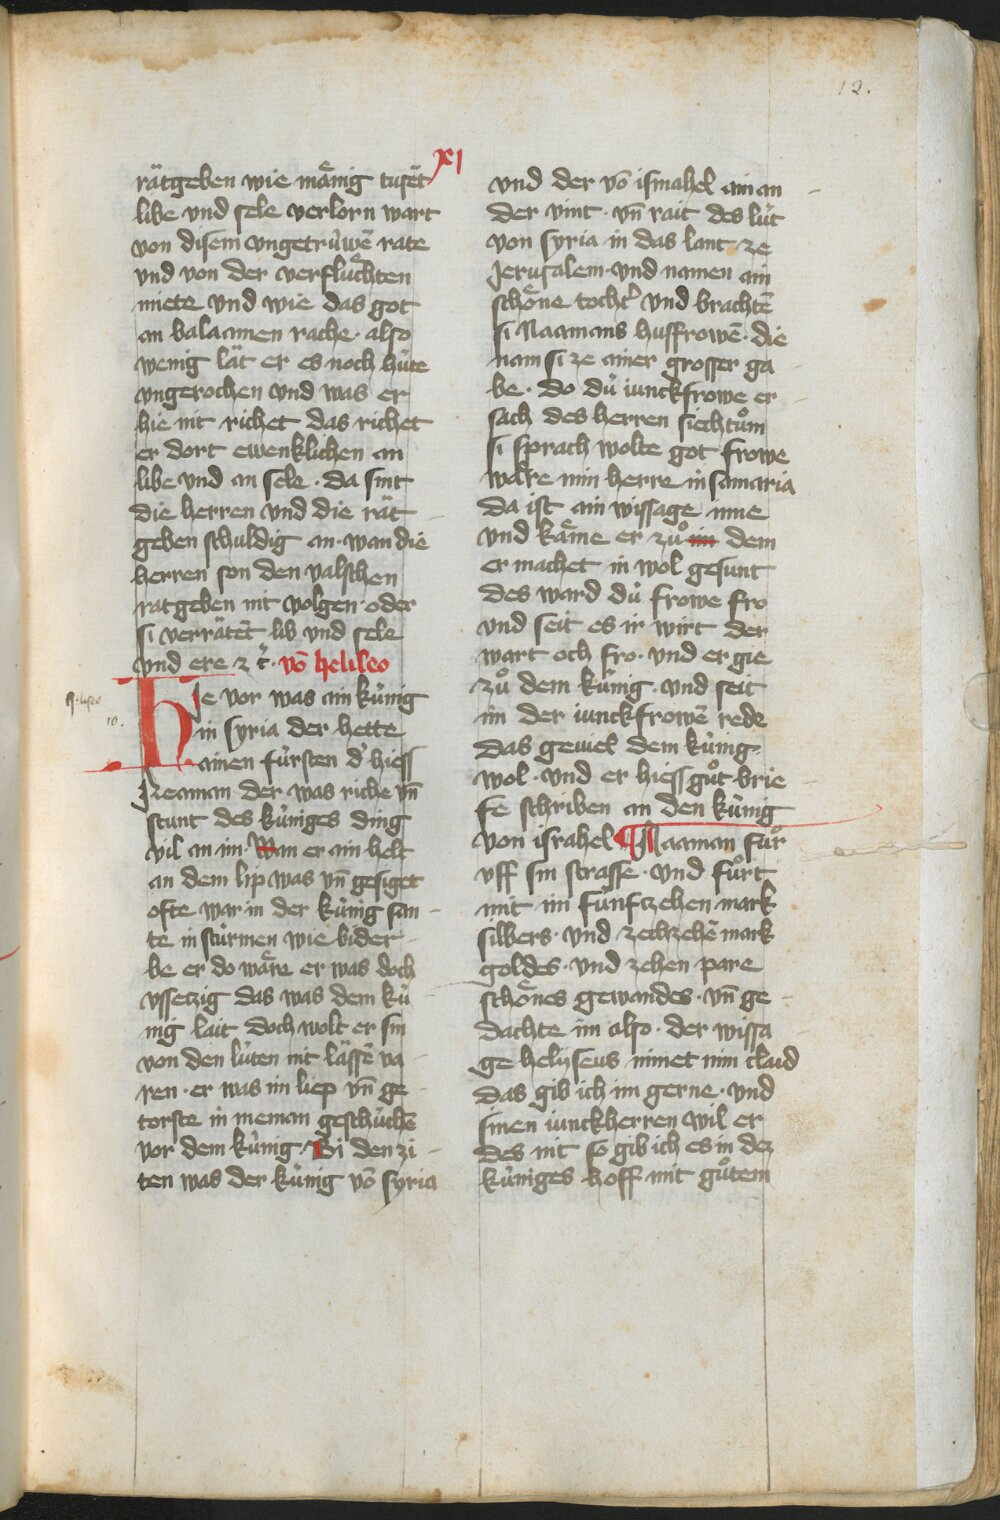 12.
XI
rätgeben wie mänig tusēt
libe vnd sele verlorn wart
von disem vngetrüwē rate
vnd von der verflůchten
miete vnd wie das got
an balaamen rache · also
wenig lät er es noch hüte
vngerochen vnd was er
hie nit richet das richet
er dort ewenklichen an
libe vnd an sele · da sint
die herren vnd die rät
geben schuldig an · wan die
herren son den valschen
ratgeben nit volgen · oder
si verrätēt lib vnd sele
vnd ere ⁊ c̄ · vō heliseo
Hie vor was ain künig
in syria der hette
ainen fürsten d' hiess
Neaman der was riche vn̄
stunt des küniges ding
vil an im · Wan er ain helt
an dem lip was vn̄ gesiget
ofte war in der künig san
te in stürmen wie bider
be er do wäre er was doch
vssetzig das was dem kü
nig lait doch wolt er sin
von den lüten nit lässē va
ren · er was im liep vn̄ ge
torste in nieman geschühē
vor dem künig · Bi den zi
ten was der künig vō syria
vnd der vō ismahel ain an
der vint · vn̄ rait des lüt
von syria in das lant ze
Jerusalem · vnd namen ain
schöne tocht' vnd brachtē
si Naamans husfrowē · die
nam si ze ainer grosser ga
be · do dü iunckfrowe er
sach des herren siechtům
si sprach wolte got frowe
wäre min herre in samaria
da ist ain wissage inne
vnd käme er zů im dem
er machet in wol gesunt
des ward dü frowe fro
vnd seit es ir wirt der
wart och fro · vnd er gie
zů dem künig · vnd seit
im der iunckfrowē rede
das geuiel dem künig
wol · vnd er hiess gůt brie
fe schriben an den künig
von israhel ¶ Naaman fůr
vff sin strasse · vnd fůrt
mit im fünfzehen mark
silbers · vnd zechzehē mark
goldes · vnd zehen pare
schönes gewandes · vn̄ ge
dachte im also · der wissa
ge helyseus nimet min claid
das gib ich im gerne · vnd
sinen iunckherren wil er
des nit so gib ich es in dez
küniges hoff mit gůtem